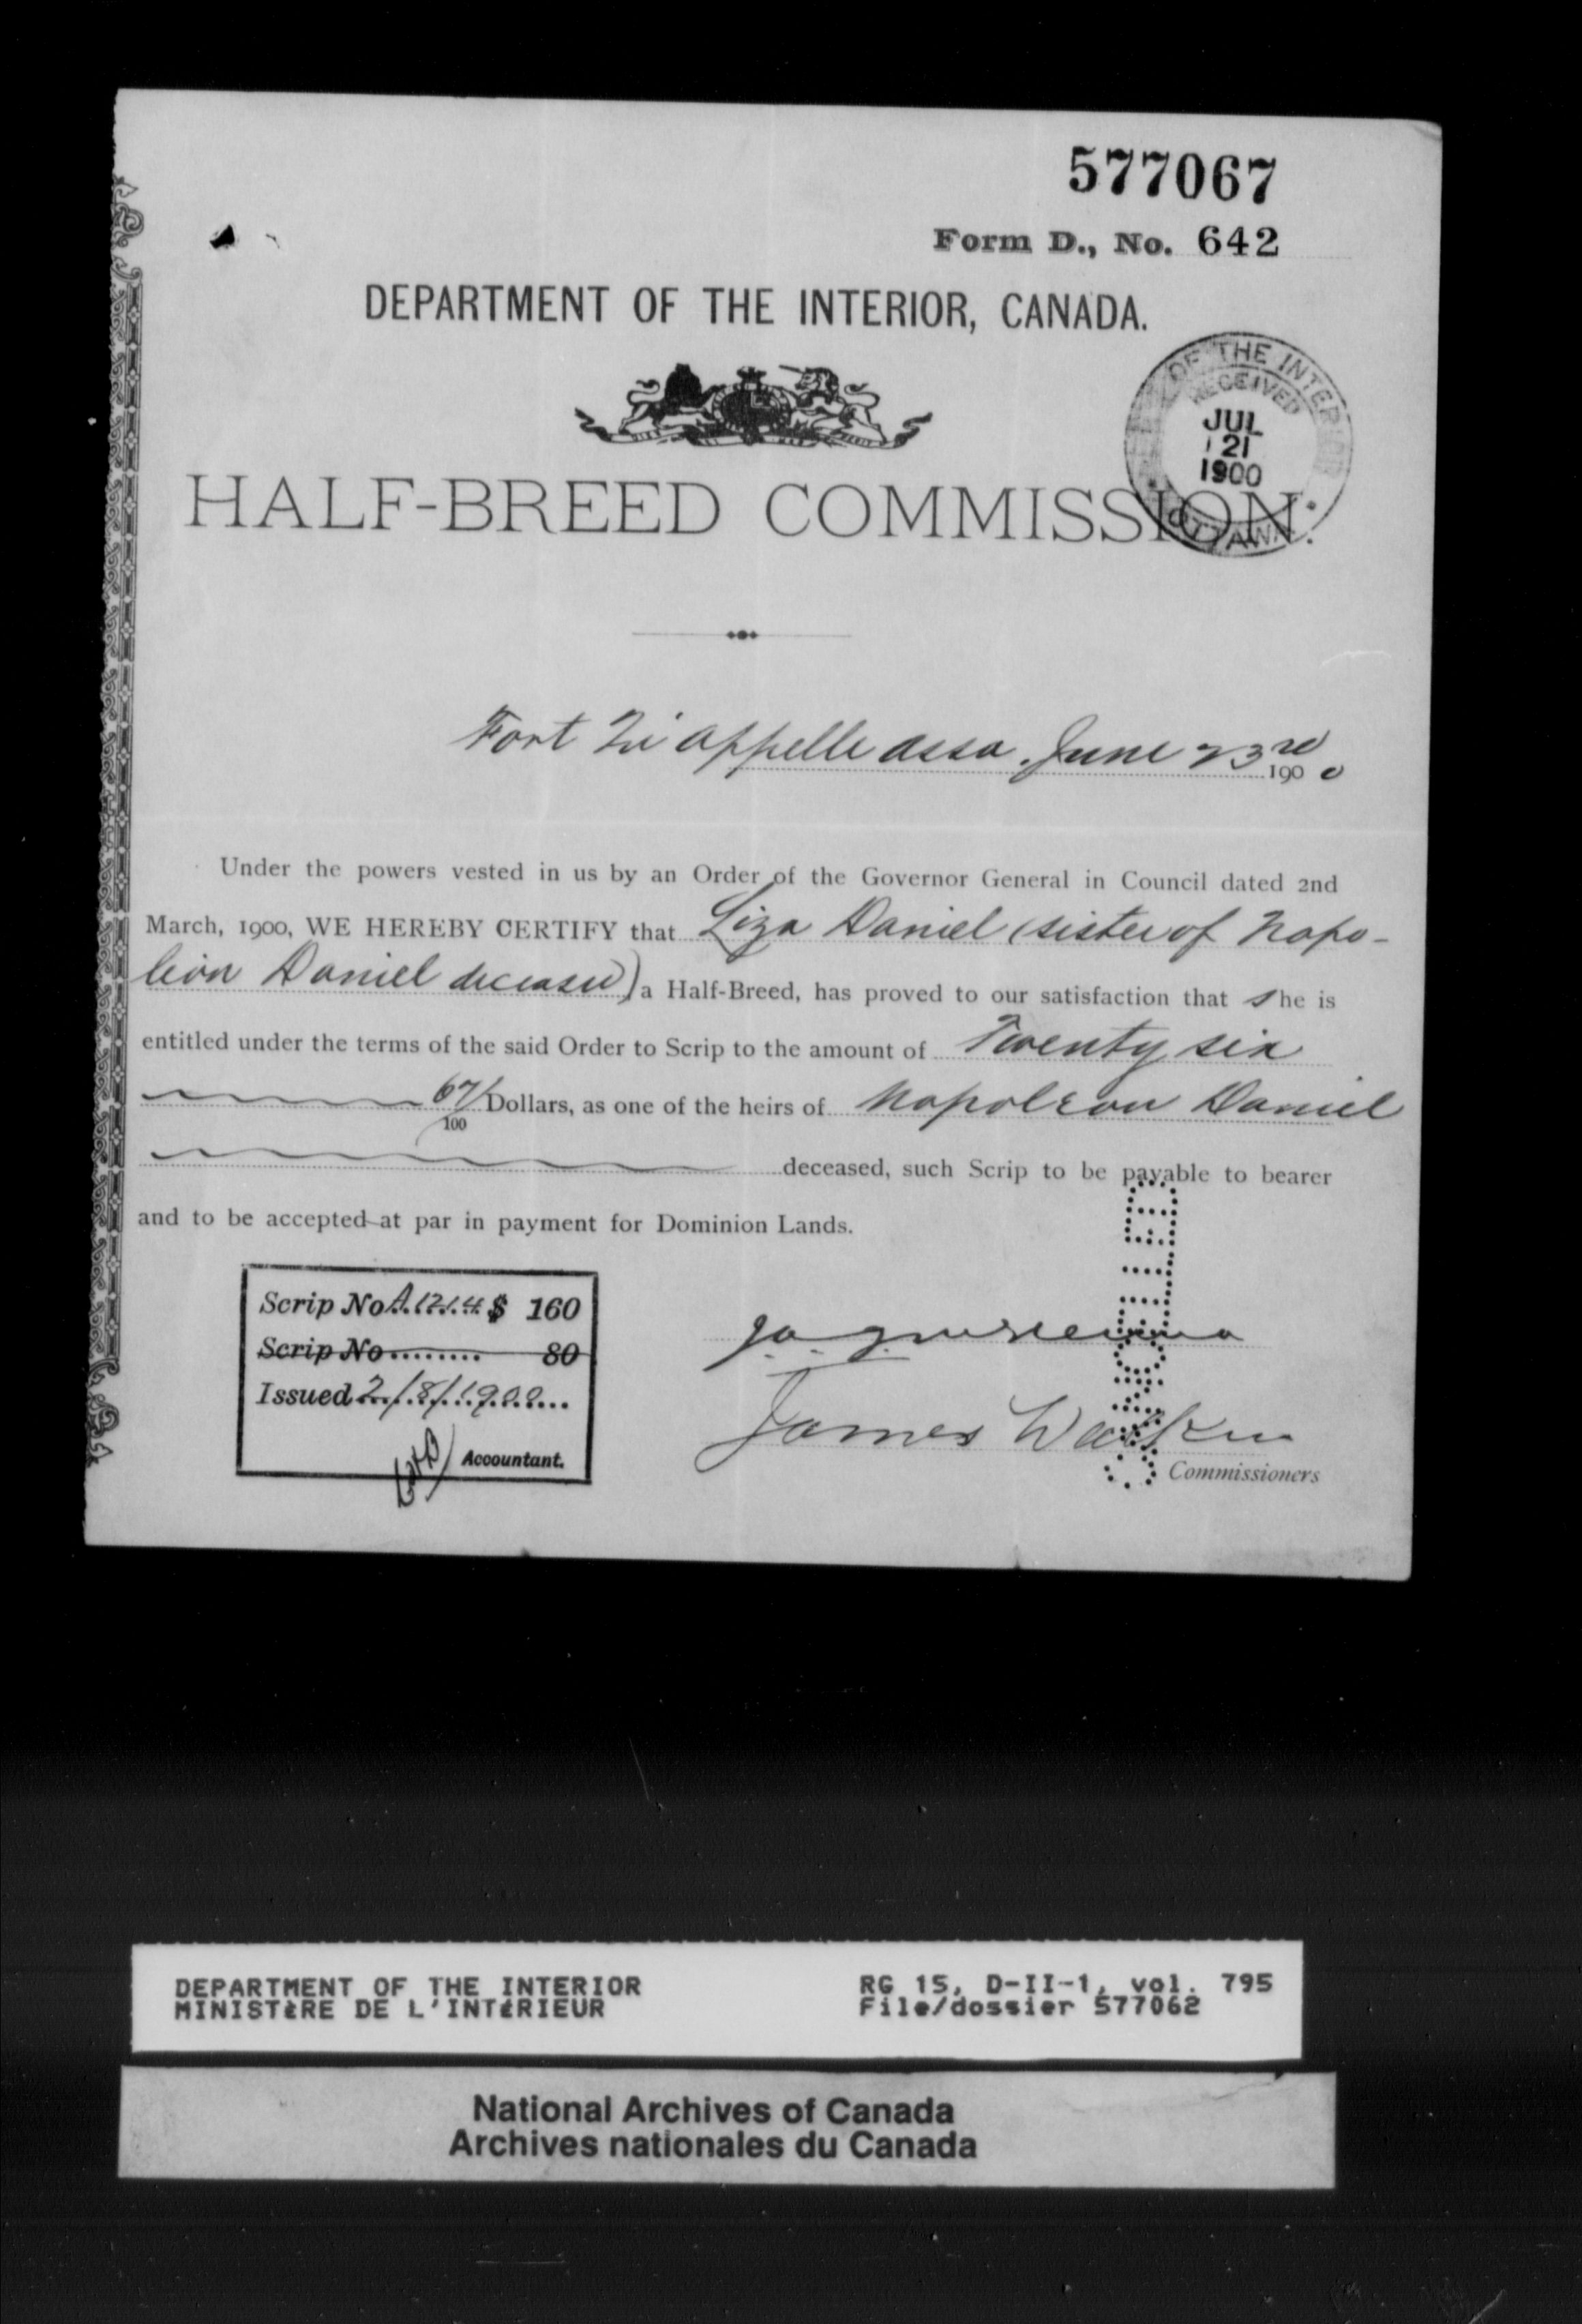 577067
Form D., No. 642
DEPARTMENT OF THE INTERIOR, CANADA.
OF THE INTERIOR
RECEIVED
JUL
21
1900
OTTAWA
HALF-BREED COMMISSION.
Fort Qu'appelle assa. June 23rd 1900
Under the powers vested in us by an Order of the Governor General in Council dated 2nd
March, 1900, WE HEREBY CERTIFY that Liza Daniel (sister of Napo-
leon Daniel deceased) a Half-Breed, has proved to our satisfaction that she is
entitled under the terms of the said Order to Scrip to the amount of Twenty six
67/100 Dollars, as one of the heirs of Napoleon Daniel
deceased, such Scrip to be payable to bearer
and to be accepted at par in payment for Dominion Lands.
Scrip No A.1214 $ 160
Scrip No......... 80
Issued 2/8/1900...
Accountant.
James Walker
Commissioners
DEPARTMENT OF THE INTERIOR
MINISTÈRE DE L'INTÉRIEUR
RG 15, D-II-1, vol. 795
File/dossier 577062
National Archives of Canada
Archives nationales du Canada